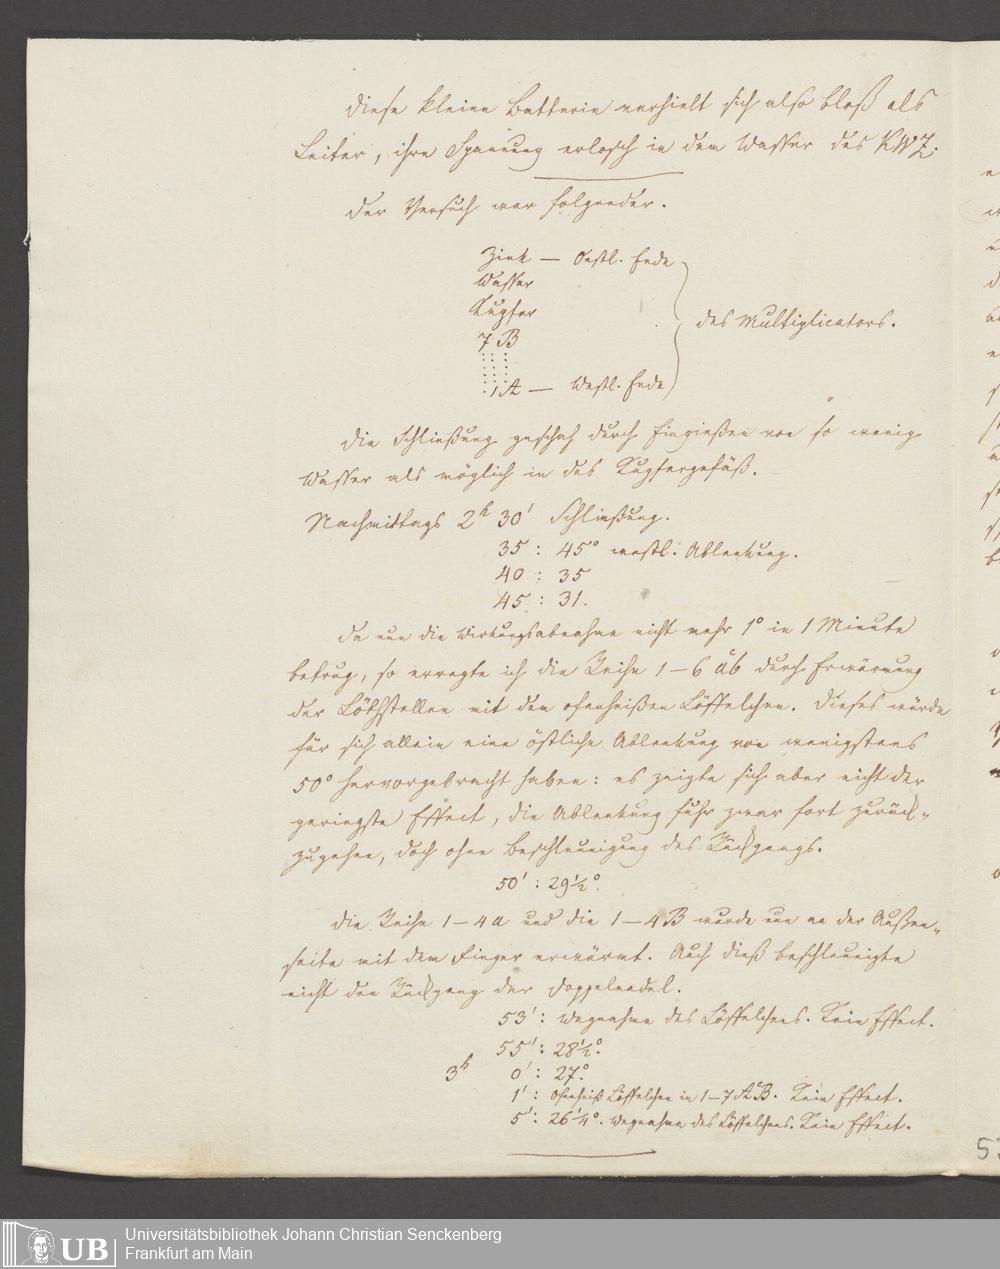 diese kleine Batterie verhielt sich also bloß als
Leiter, ihre Spannung erlosch in dem Wasser des KWZ.
der Versuch war folgender.
Zink — Oestl. Ende
Wasser
Kupfer
7 B
1 A — Westl. Ende
des Multiplicators.
die Schließung geschah durch Eingießen von so wenig
Wasser als möglich in das Kupfergefäß.
Nachmittags 2h 30' Schließung.
35 : 45° westl. Ablenkung.
40 : 35
45 : 31.
da nun die Wirkungsabnahme nicht mehr 1° in 1 Minute
betrug, so erregte ich die Reihe 1–6 durch Erwärmung
der Löthstellen mit den ofenheißen Löffelchen. Dieses würde
für sich allein eine östliche Ablenkung von wenigstens
50° hervorgebracht haben: es zeigte sich aber nicht der
geringste Effect, die Ablenkung fuhr zwar fort zurück-
zugehen, doch ohne Beschleunigung des Rückgangs.
50' : 29½°.
die Reihe 1–4 a und die 1–4 B wurde nun an der Außen-
seite mit dem Finger erwärmt. Auch dieß beschleunigte
nicht den Rückgang der Doppelnadel.
53' : Wegnahme des Löffelchens. Kein Effect.
55' : 28½°.
3h 0' : 27°.
1' : Ofenheiß Löffelchen in 1–7 AB. Kein Effect.
5' : 26¼°. Wegnahme des Löffelchens. Kein Effect.
UB
Universitätsbibliothek Johann Christian Senckenberg
Frankfurt am Main